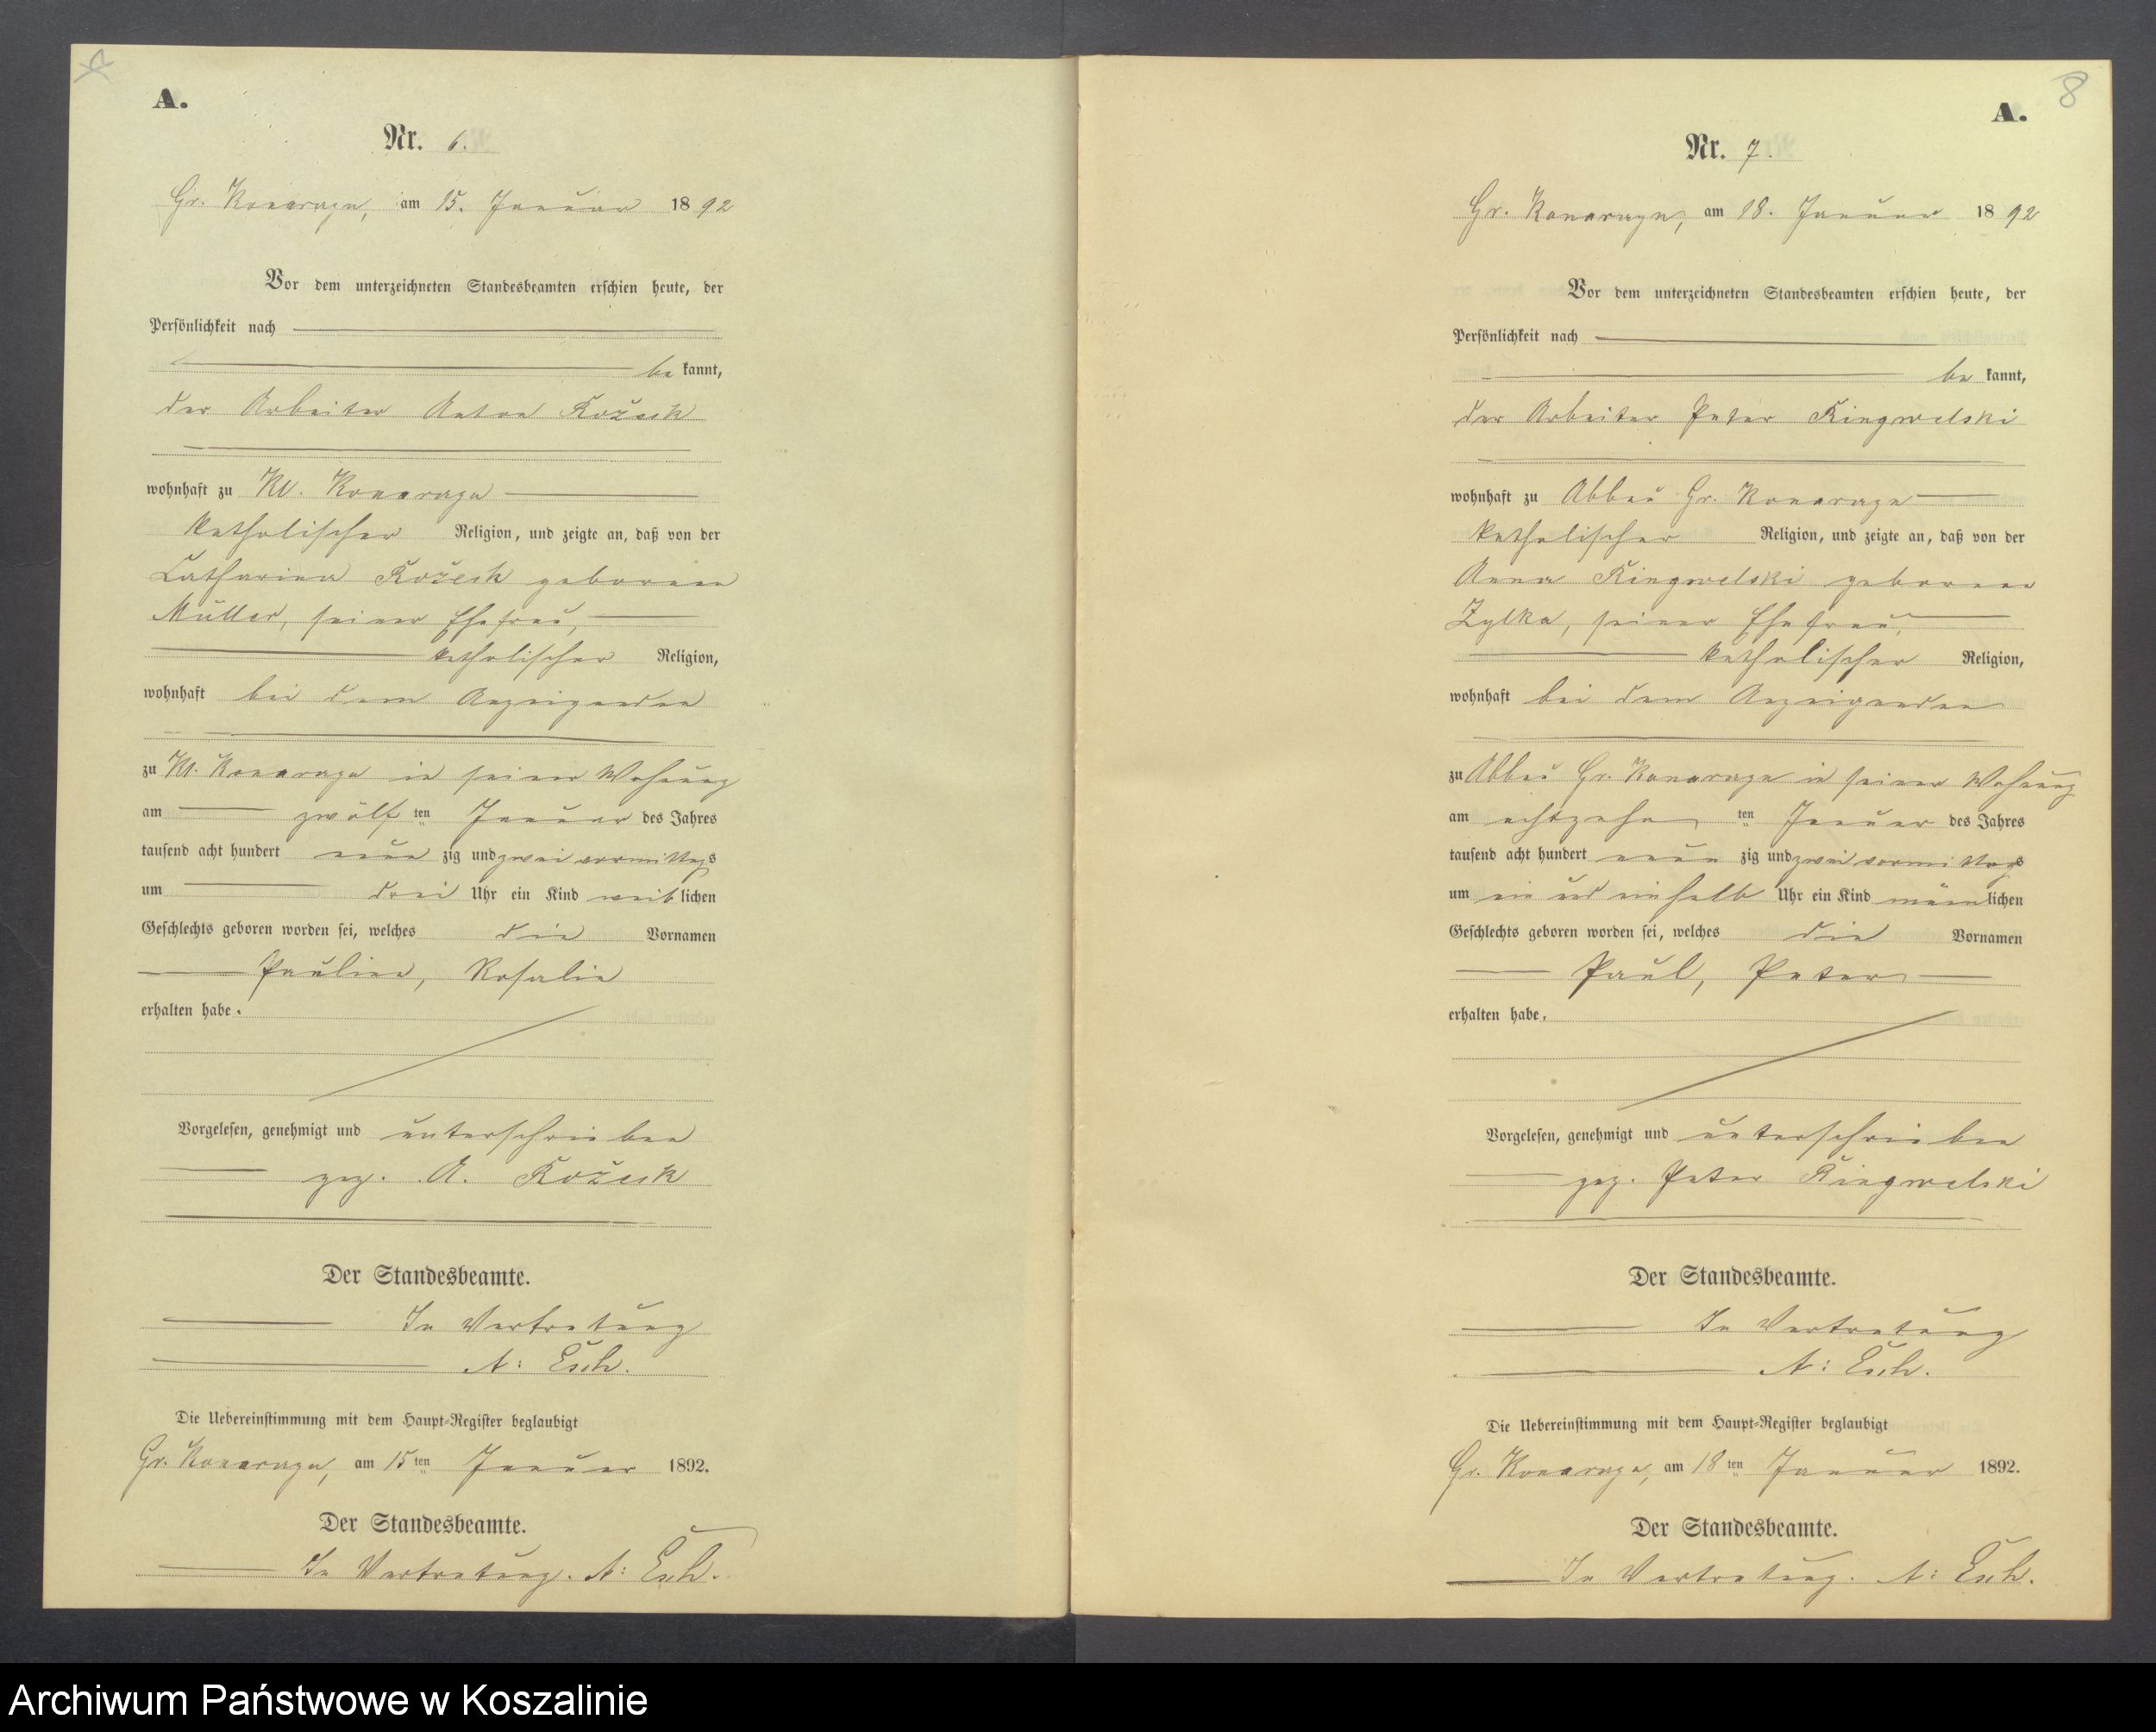 A.
Nr. 6.
Gr. Konarczyn, am 15. Januar 1892
Vor dem unterzeichneten Standesbeamten erschien heute, der
Persönlichkeit nach
be kannt,
der Arbeiter Anton
wohnhaft zu Kl. Konarczyn
katholischer Religion, und zeigte an, daß von der
Catharina geborenen
Müller, seiner Ehefrau,
katholischer Religion,
wohnhaft bei dem Anzeigenden
zu Kl. Konarczyn in seiner Wohnung
am zwölf ten Januar des Jahres
tausend acht hundert neun zig und zwei vormittags
um drei Uhr ein Kind weib lichen
Geschlechts geboren worden sei, welches die Vornamen
Paulina, Rosalie
erhalten habe.
Vorgelesen, genehmigt und unterschrieben
gez. A.
Der Standesbeamte.
In Vertretung
A: Esch.
Die Uebereinstimmung mit dem Haupt-Register beglaubigt
Gr. Konarczyn, am 15 ten Januar 1892.
Der Standesbeamte.
In Vertretung. A: Esch.
8
A.
Nr. 7.
Gr. Konarczyn, am 18. Januar 1892
Vor dem unterzeichneten Standesbeamten erschien heute, der
Persönlichkeit nach
be kannt,
der Arbeiter Peter Ringwelski
wohnhaft zu Abbau Gr. Konarczyn
katholischer Religion, und zeigte an, daß von der
Anna Ringwelski geborenen
Zylka, seiner Ehefrau,
katholischer Religion,
wohnhaft bei dem Anzeigenden
zu Abbau Gr. Konarczyn in seiner Wohnung
am achtzehn ten Januar des Jahres
tausend acht hundert neun zig und zwei vormittags
um ein und einhalb Uhr ein Kind männ lichen
Geschlechts geboren worden sei, welches die Vornamen
Paul, Peter
erhalten habe.
Vorgelesen, genehmigt und unterschrieben
gez. Peter Ringwelski
Der Standesbeamte.
In Vertretung
A: Esch.
Die Uebereinstimmung mit dem Haupt-Register beglaubigt
Gr. Konarczyn, am 18 ten Januar 1892.
Der Standesbeamte.
In Vertretung. A: Esch.
Archiwum Państwowe w Koszalinie